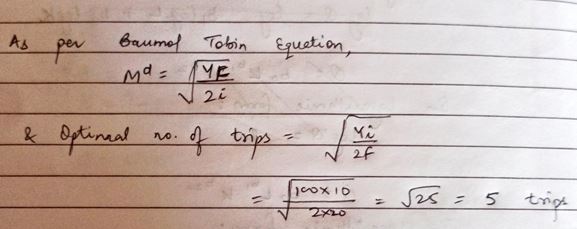 As per Baumol Tobin Equation,
Mᵈ = √(YF/2i)
& Optimal no. of trips = √(Yi/2F)
= √(100×10/2×20) = √25 = 5 trips